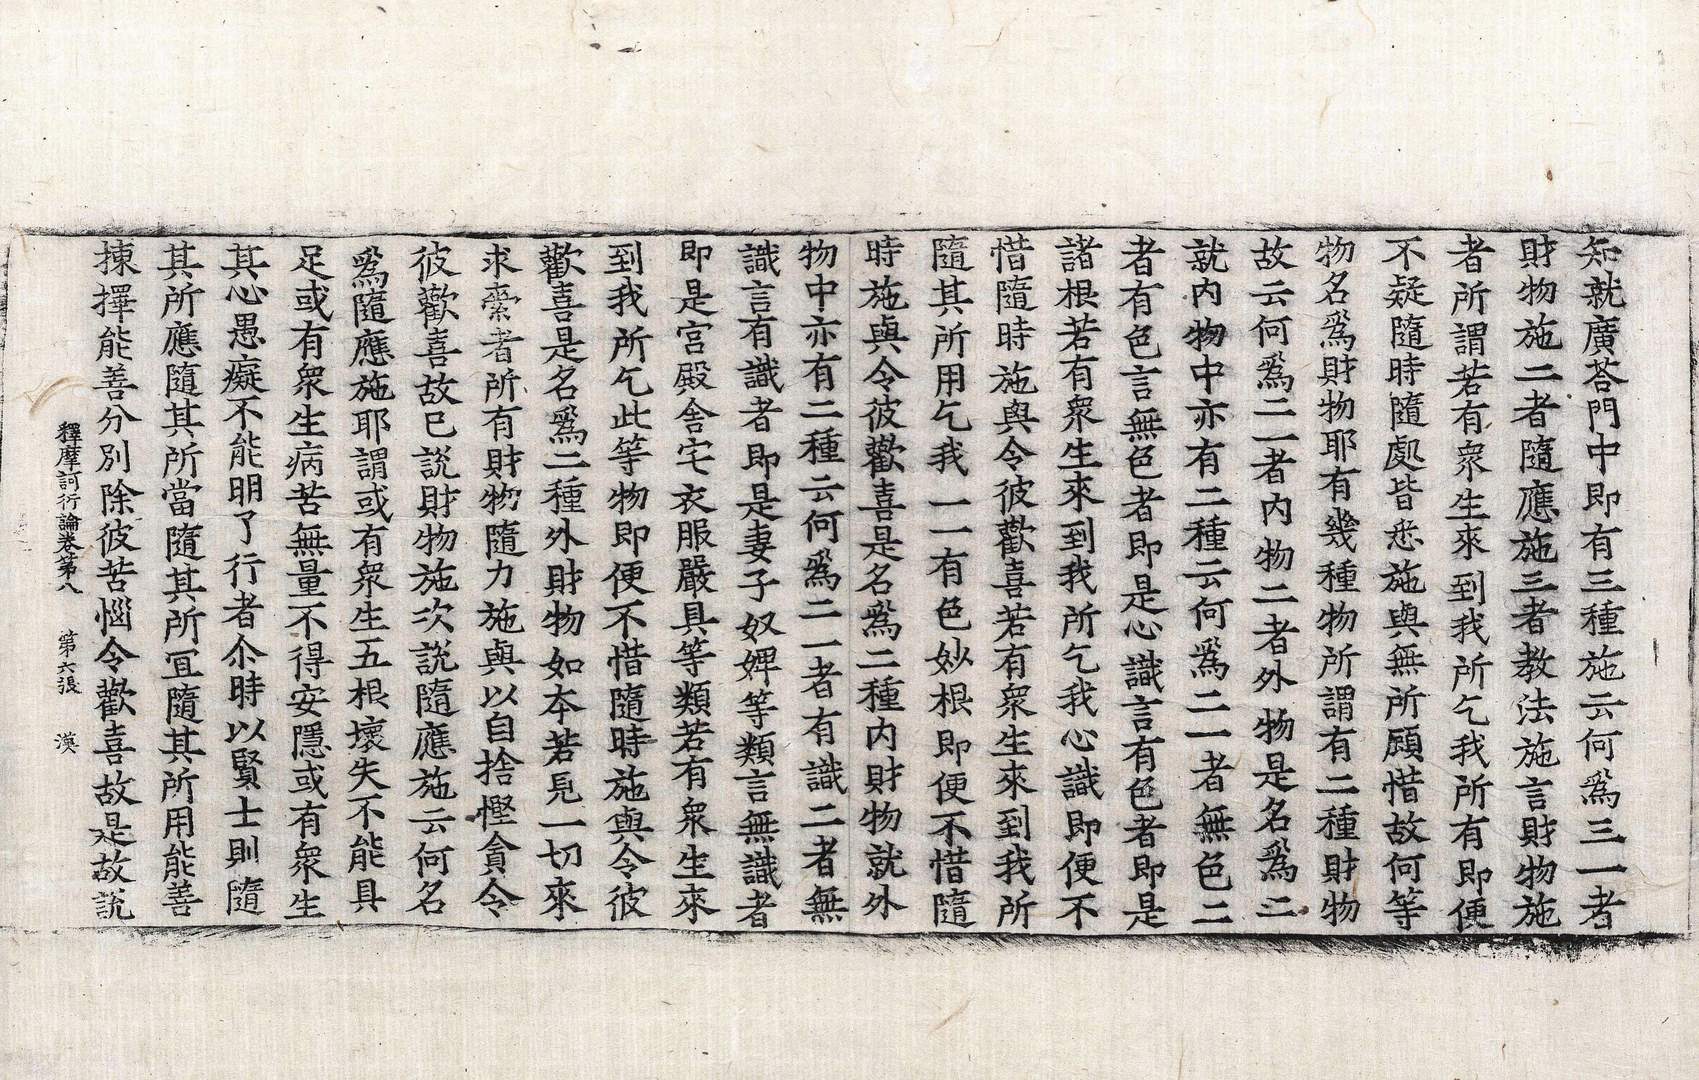 知就廣荅門中即有三種施云何爲三一者
財物施二者隨應施三者教法施言財物施
者所謂若有衆生來到我所乞我所有即便
不疑隨時隨處皆悉施與無所顧惜故何等
物名爲財物耶有幾種物所謂有二種財物
故云何爲二一者內物二者外物是名爲二
就內物中亦有二種云何爲二一者無色二
者有色言無色者即是心識言有色者即是
諸根若有衆生來到我所乞我心識即便不
惜隨時施與令彼歡喜若有衆生來到我所
隨其所用乞我一一有色妙根即便不惜隨
時施與令彼歡喜是名爲二種內財物就外
物中亦有二種云何爲二一者有識二者無
識言有識者即是妻子奴婢等類言無識者
即是宮殿舍宅衣服嚴具等類若有衆生來
到我所乞此等物即便不惜隨時施與令彼
歡喜是名爲二種外財物如本若見一切來
求索者所有財物隨力施與以自捨慳貪令
彼歡喜故已說財物施次說隨應施云何名
爲隨應施耶謂或有衆生五根壞失不能具
足或有衆生病苦無量不得安隱或有衆生
其心愚癡不能明了行者尒時以賢士則隨
其所應隨其所當隨其所冝隨其所用能善
揀擇能善分別除彼苦惱令歡喜故是故說
釋摩訶衍論卷第八 第六張 漢